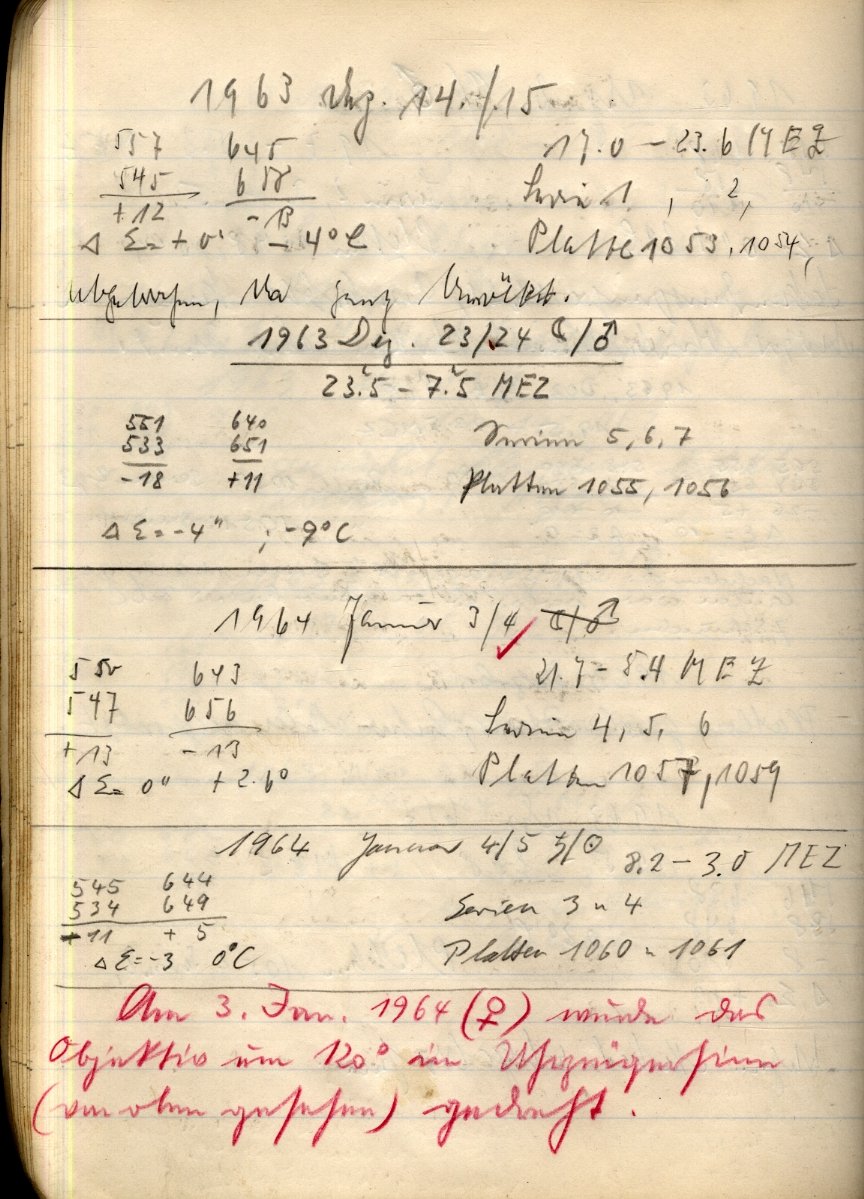 1963 Dez. 14./15.
557 645 17.0 – 23.6 MEZ
545 658 Serie 1, 2,
+12 -13
Δ Σ = + 0" – 4°C Platte 1053, 1054,
abgebrochen, da ganz bewölkt.
1963 Dez. 23/24 ☾/♂
23.5 – 7.5 MEZ
551 640 Serien 5, 6, 7
533 651
-18 +11 Platten 1055, 1056
Δ Σ = -4" ; -9°C
1964 Januar 3/4 ☾/♂
550 643 21.7 – 5.4 MEZ
547 656 Serien 4, 5, 6
+13 – 13
Δ Σ = 0" + 2.6° Platten 1057, 1059
1964 Januar 4/5 ♄/☉ 8.2 – 3.0 MEZ
545 644
534 649 Serien 3 u 4
+11 + 5
Δ Σ = -3 0°C Platten 1060 u 1061
Am 3. Jan. 1964 (♀) wurde das
Objektiv um 120° im Uhrzeigersinn
(von oben gesehen) gedreht.